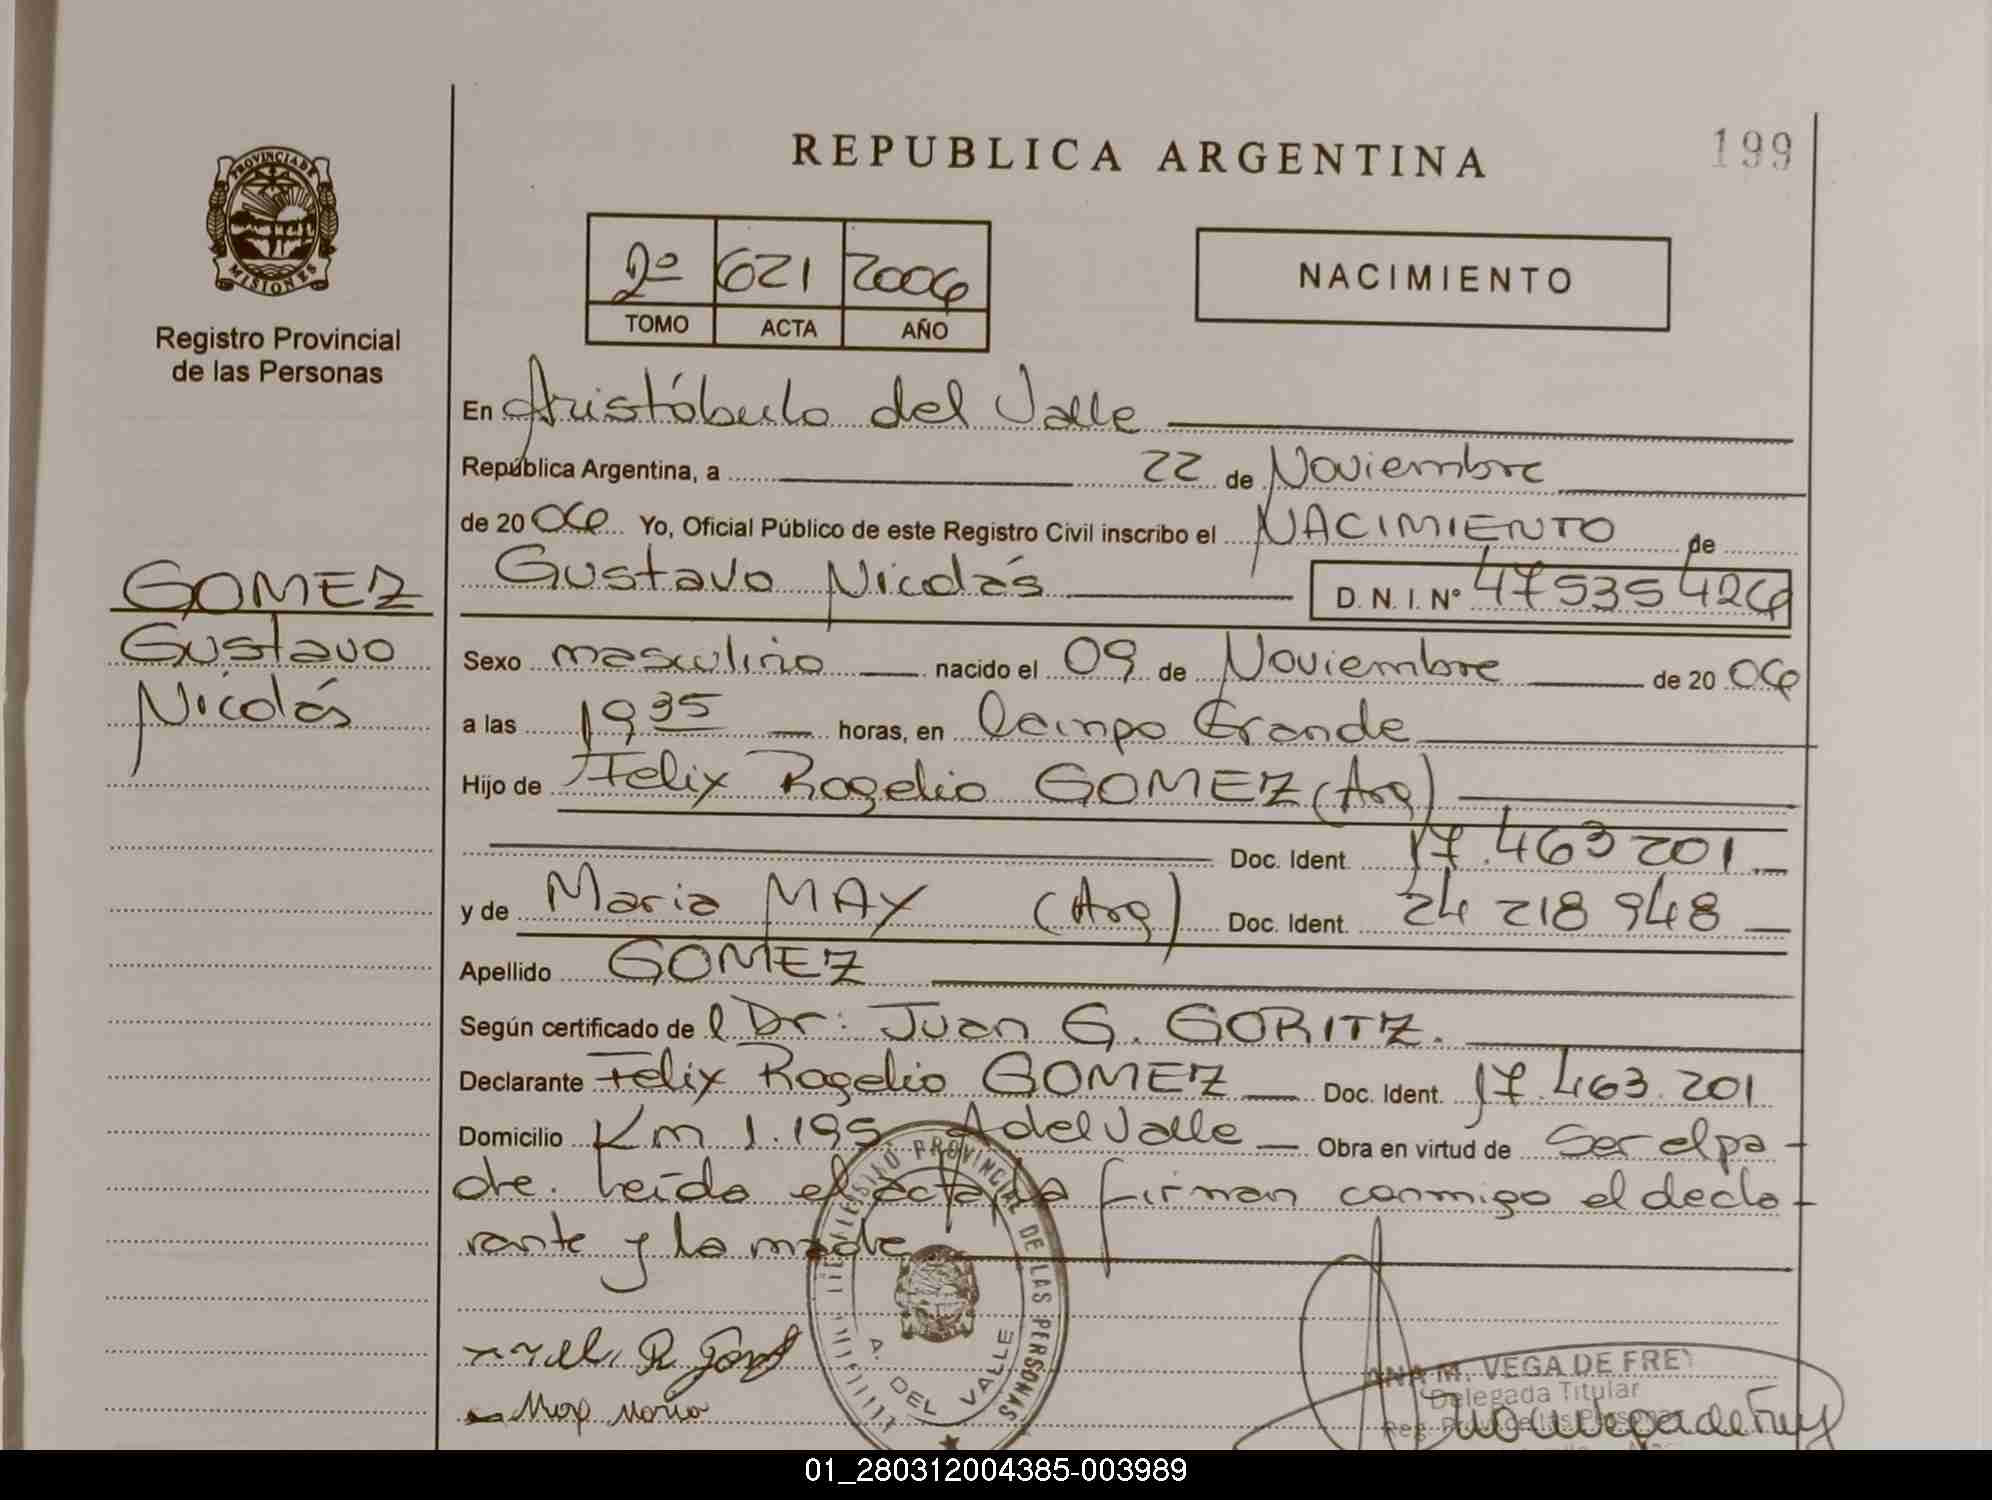 REPUBLICA ARGENTINA
199
PROVINCIA DE
MISIONES
Registro Provincial
de las Personas
2º 621 2006
TOMO ACTA AÑO
NACIMIENTO
En Aristóbulo del Valle
República Argentina, a 22 de Noviembre
de 2006 Yo, Oficial Público de este Registro Civil inscribo el NACIMIENTO de
Gustavo Nicolás D. N. I. Nº 47535426
GOMEZ
Gustavo
Nicolás
Sexo masculino nacido el 09 de Noviembre de 2006
a las 19 35 horas, en Campo Grande
Hijo de Felix Rogelio GOMEZ (Arg)
Doc. Ident. 17.463 201
y de Maria MAY (Arg) Doc. Ident. 24 218 948
Apellido GOMEZ
Según certificado del Dr: Juan G. GORITZ.
Declarante Felix Rogelio GOMEZ Doc. Ident. 17.463.201
Domicilio Km 1.195 A del Valle Obra en virtud de Ser el pa-
dre. Leída el acta la firman conmigo el decla-
rante y la madre
REGISTRO PROVINCIAL DE LAS PERSONAS
A. DEL VALLE
May Maria
ANA M. VEGA DE FREY
Delegada Titular
01_280312004385-003989